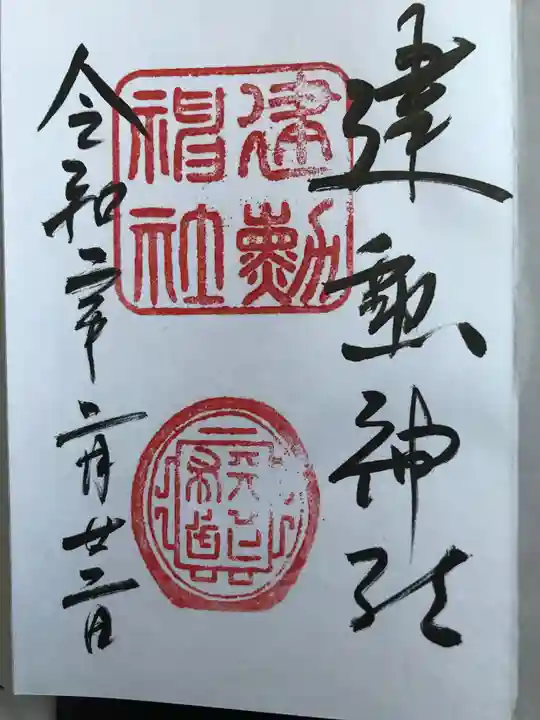 建勲神社
建勲
神社
令和二年二月廿三日